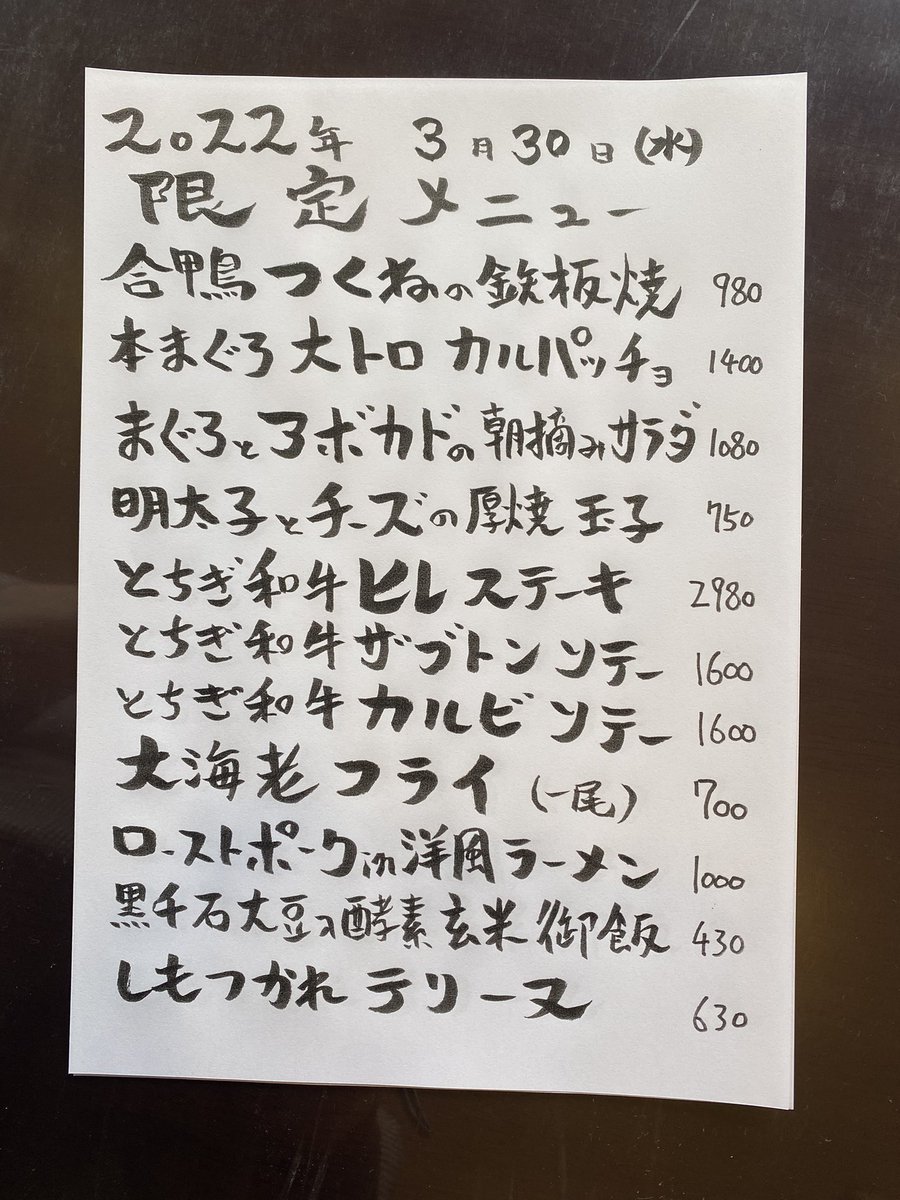 2022年 3月30日(水)
限定メニュー
合鴨つくねの鉄板焼 980
本まぐろ大トロ カルパッチョ 1400
まぐろとアボカドの朝摘みサラダ 1080
明太子とチーズの厚焼玉子 750
とちぎ和牛ヒレステーキ 2980
とちぎ和牛ザブトンソテー 1600
とちぎ和牛カルビソテー 1600
大海老フライ(一尾) 700
ローストポークin洋風ラーメン 1000
黒千石大豆入酵素玄米御飯 430
しもつかれテリーヌ 630